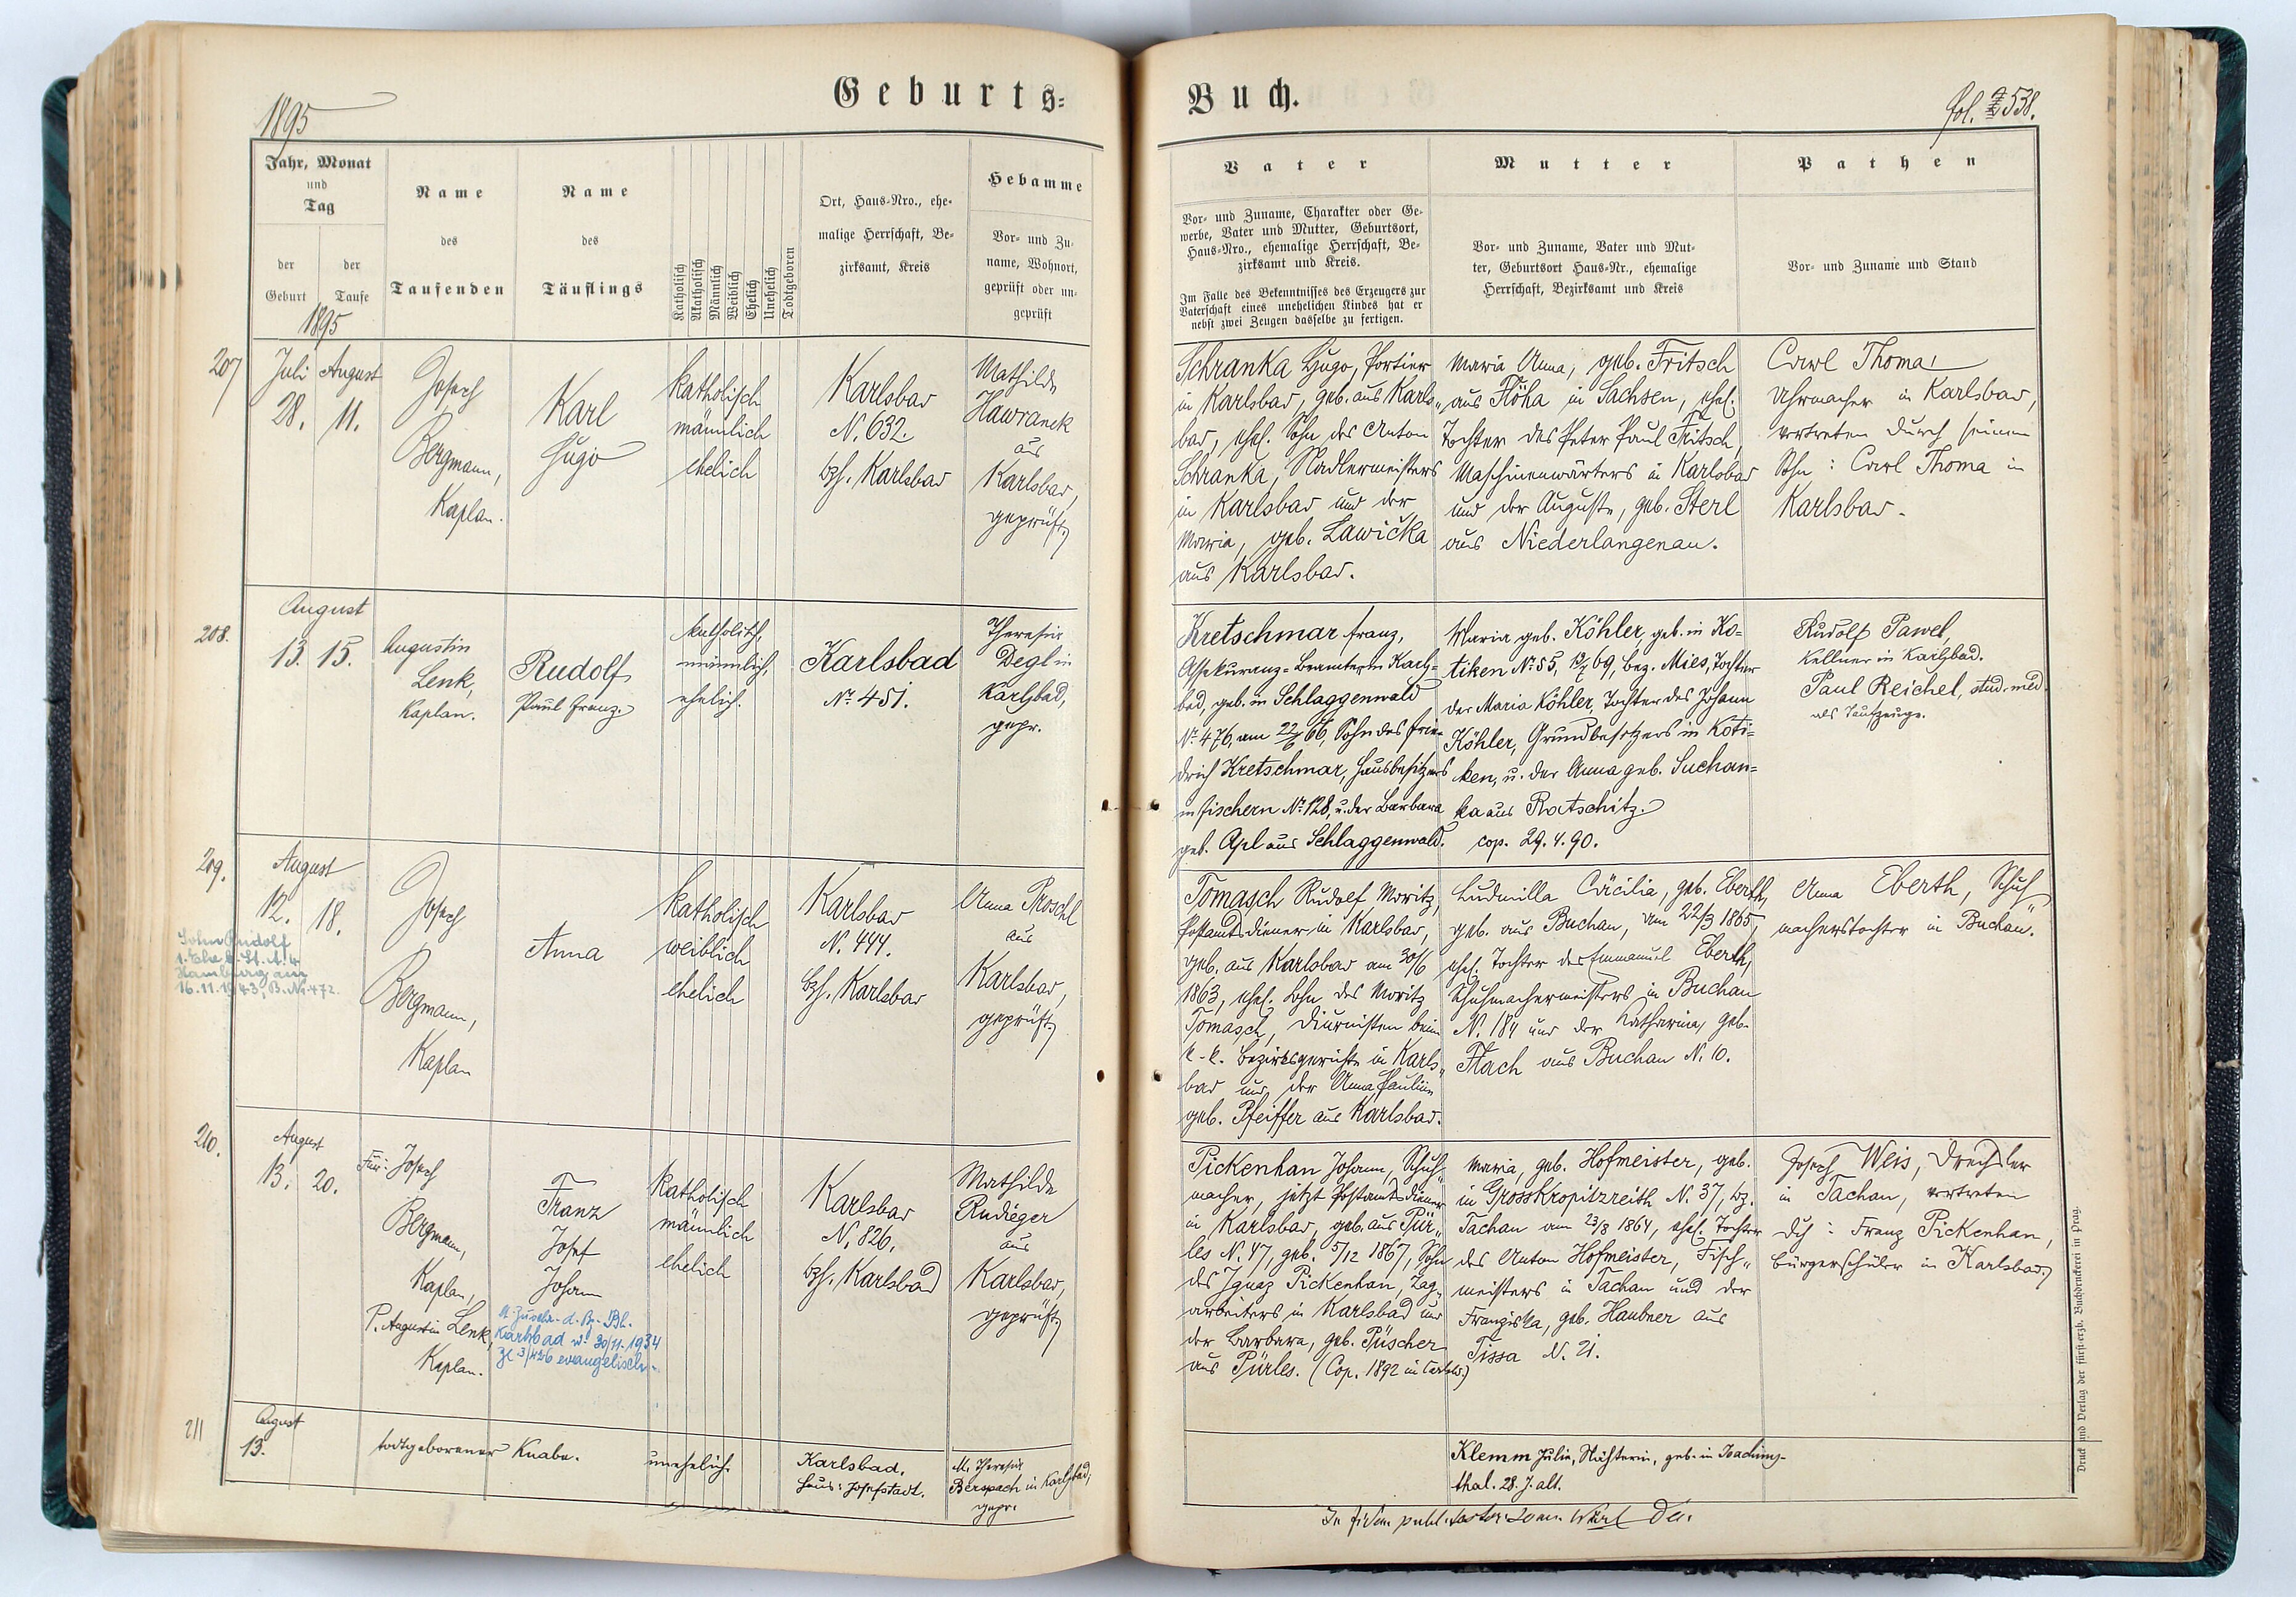 1895
Geburts-
Jahr, Monat
und
Tag
der
Geburt
der
Taufe
1895
Name
des
Taufenden
Name
des
Täuflings
Katholisch
Akatholisch
Männlich
Weiblich
Ehelich
Unehelich
Todtgeboren
Ort, Haus-Nro., ehe-
malige Herrschaft, Be-
zirksamt, Kreis
Hebamme
Vor- und Zu-
name, Wohnort,
geprüft oder un-
geprüft
207
Juli
28.
August
11.
Josef
Bergmann,
Kaplan.
Karl
Hugo
katholisch
männlich
ehelich
Karlsbad
N. 632.
bzh. Karlsbad
Mathilde
Hawranek
aus
Karlsbad,
geprüft
208.
August
13. 15.
Augustin
Lenk,
Kaplan.
Rudolf
Paul Franz.
katholisch,
männlich,
ehelich.
Karlsbad
No 451.
Theresia
Degl in
Karlsbad,
gepr.
209.
August
12. 18.
Sohn Rudolf
1. Ehe b. St. A.
Hamburg am
16.11.1943, B. Nr. 472.
Josef
Bergmann,
Kaplan
Anna
katholisch
weiblich
ehelich
Karlsbad
N. 444.
bzh. Karlsbad
Anna Proschl
aus
Karlsbad,
geprüft
210.
August
13. 20.
Für: Josef
Bergmann,
Kaplan,
P. Augustin Lenk,
Kaplan.
Franz
Josef
Johann
Karlsbad 30/11. 1934
Zl 3/426 evangelisch.
katholisch
männlich
ehelich
Karlsbad
N. 826.
bzh. Karlsbad
Mathilde
Rudieger
aus
Karlsbad,
geprüft
211
August
13.
todtgeborener Knabe.
unehelich.
Karlsbad.
Haus: Josefstadt.
M. Theresia
Berspach in Karlsbad,
gepr.
Buch.
fol. 538.
Vater
Vor- und Zuname, Charakter oder Ge-
werbe, Vater und Mutter, Geburtsort,
Haus-Nro., ehemalige Herrschaft, Be-
zirksamt und Kreis.
Im Falle des Bekenntnisses des Erzeugers zur
Vaterschaft eines unehelichen Kindes hat er
nebst zwei Zeugen dasselbe zu fertigen.
Mutter
Vor- und Zuname, Vater und Mut-
ter, Geburtsort Haus-Nr., ehemalige
Herrschaft, Bezirksamt und Kreis
Pathen
Vor- und Zuname und Stand
Schranka Hugo, Portier
in Karlsbad, geb. aus Karls„
bad, ehel. Sohn des Anton
Schranka, Nadlermeisters
in Karlsbad und der
Maria, geb. Lawička
aus Karlsbad.
Maria Anna, geb. Fritsch
aus Flöha in Sachsen, ehel.
Tochter des Peter Paul Fritsch,
Maschinenwärters in Karlsbad
und der Auguste, geb. Sterl
aus Niederlangenau.
Carl Thoma
Uhrmacher in Karlsbad,
vertreten durch seinen
Sohn: Carl Thoma in
Karlsbad.
Kretschmar Franz,
Assekuranz-Beamter in Karls-
bad, geb. in Schlaggenwald
No 476, am 22/6 66, Sohn des Frie-
drich Kretschmar, Hausbesitzers
in Fischern No 128, u. der Barbara
geb. Apl aus Schlaggenwald.
Maria geb. Köhler, geb. in Ko-
tiken No 55, 69, bez. Mies, Tochter
der Maria Köhler, Tochter des Johann
Köhler, Grundbesitzers in Koti-
ken, u. der Anna geb. Suchan-
ka aus Ratschitz.
cop. 29. 4. 90.
Rudolf Pawel,
Kellner in Karlsbad.
Paul Reichel, stud. med.
als Taufzeuge.
Tomasch Rudolf Moritz,
Postamtsdiener in Karlsbad,
geb. aus Karlsbad am 30/6
1863, ehel. Sohn des Moritz
Tomasch, Diurnisten beim
k.-k. Bezirksgerichte in Karls„
bad und der Anna Pauline
geb. Pfeiffer aus Karlsbad.
Ludmilla Cäcilia, geb. Eberth,
geb. aus Buchau, am 22/3 1865,
ehel. Tochter des Emmanuel Eberth,
Schuhmachermeisters in Buchau
N. 184 und der Katharina, geb.
Flach aus Buchau N. 10.
Anna Eberth, Schuh„
macherstochter in Buchau.
Pickenhan Johann, Schuh„
macher, jetzt Postamtsdiener
in Karlsbad, geb. aus Pür„
les N. 47, geb. 5/12 1867, Sohn
des Ignaz Pickenhan, Tag„
arbeiters in Karlsbad und
der Barbara, geb. Püscher
aus Pürles. (Cop. 1892 in Carlsb.)
Maria, geb. Hofmeister, geb.
in Grosskropitzreith N. 37, bz.
Tachau am 23/8 1864, ehel. Tochter
des Anton Hofmeister, Fisch„
meisters in Tachau und der
Franziska, geb. Haubner aus
Tissa N. 21.
Josef Weis, Drechsler
in Tachau, vertreten
dch: Franz Pickenhan,
Bürgerschüler in Karlsbad.
Klemm Julie, Nähterin, geb. in Joachims-
thal. 28. J. alt.
Druck und Verlag der fürsterzb. Buchdruckerei in Prag.